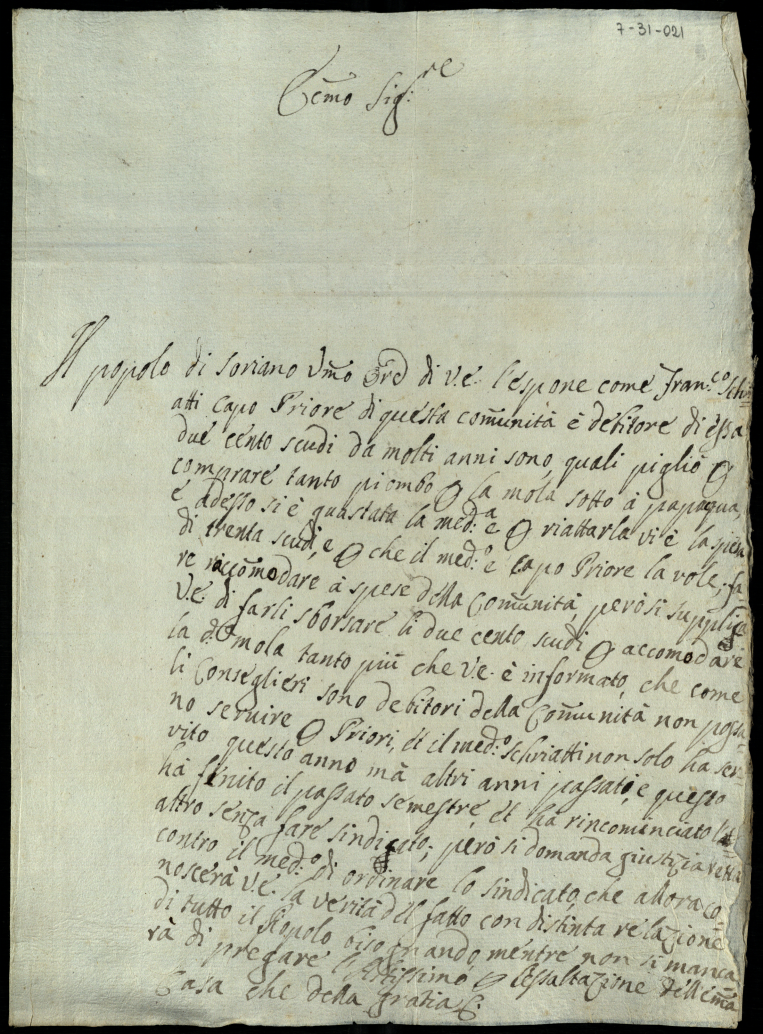 7-31-021
Ecc̄mo Sig:re
Il popolo di Soriano Um̄o Ore di V.E. l'espone come Fran:co Schri=
atti Capo Priore di questa comm̄unità è debitore di essa
due cento scudi da molti anni sono, quali pigliò p
comprare tanto piombo p la mola sotto à papaqua,
e adesso si è guastata la med:a e p riattarla vi è la spesa
di trenta scudi, e p che il med:o e Capo Priore la vole fa=
re riccomodare à spese della Com̄unità però si supplica
V.E. di farli sborsare li due cento scudi p accomodare
la d:a mola tanto più che V.E. è informato, che come
li Conseglieri sono debitori della Com̄unità non possa=
no servire p Priori, et il med:o Schriatti non solo ha ser=
vito questo anno mà altri anni passati, e questo
hà finito il passato semestre, et ha rincominciato l'
altro senza fare sindicato; però si domanda giustizia retta
contro il med:o di ordinare lo sindicato, che allora co=
noscerà V.E. la verità del fatto con distinta relazione
di tutto il Popolo bisognando, mentre non si manca=
rà di pregare l'Altissimo p l'essaltazione dell'Ecc̄ma
Casa che della gratia &.